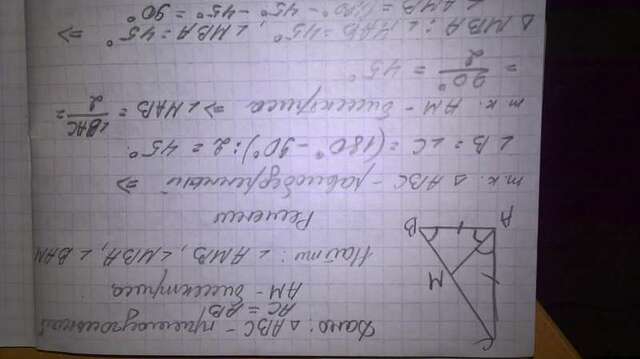 Дано: △ABC - прямоугольный
AC = AB
AM - биссектриса
Найти: ∠AMB, ∠MBA, ∠BAM
Решение
т.к. △ABC - равнобедренный ⇒
∠B = ∠C = (180° - 90°) : 2 = 45°
т.к. AM - биссектриса ⇒ ∠MAB = ∠BAC/2 =
= 90°/2 = 45°
△MBA: ∠MAB = 45°, ∠MBA = 45° ⇒
∠AMB = 180° - 45° - 45° = 90°
A
B
M
C